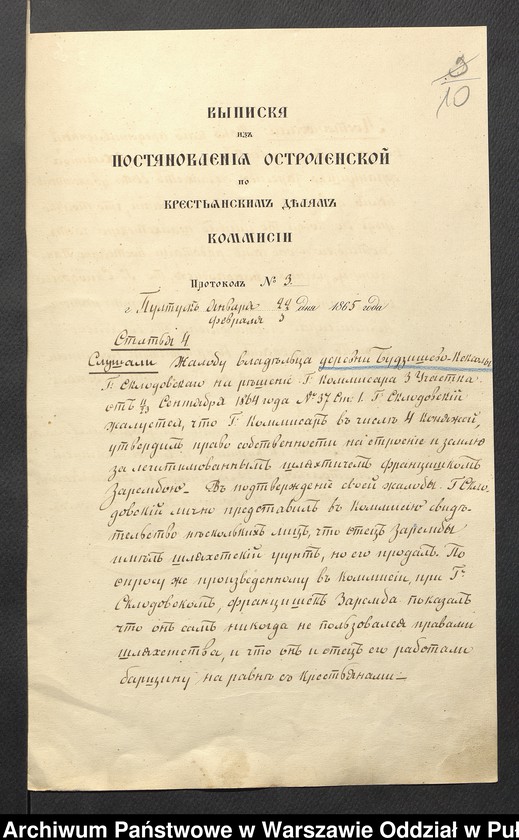 3
10
ВЫПИСКЯ
ИЗЪ
ПОСТЯНОВЛЕНІЯ ОСТРОЛЕНСКОЙ
ПО
КРЕСТЬЯНСКИМЪ ДѢЛЯМЪ
КОММИСІИ
Протоколъ № 3
г. Пултускъ Января 22 дня 1865 года
Февраля 3
Статья 4
Слушали жалобу владѣльца деревни Будзишево-
Г. Склодовскаго на рѣшеніе Г Коммисара 3 Участка
отъ Сентября 1864 года № 37 Ст. 1. Г. Склодовскій
жалуется, что Г Коммисаръ въ числѣ 4
утвердилъ право собственности на строеніе и землю
за легитимованнымъ шляхтичемъ Францишкомъ
Зарембою. Въ подтвержденіе своей жалобы Г Скло-
довскій лично представилъ въ Коммисію свидѣ-
тельство нѣсколькихъ лицъ, что отецъ Зарембы
имѣлъ шляхетскій грунтъ, но его продалъ. По
спросу же произведенному въ Коммисіи, при Гнѣ
Склодовскомъ, Францишекъ Заремба показалъ
что онъ самъ никогда не пользовался правами
шляхетства, и что онъ и отецъ его работали
барщину на равнѣ съ крестьянами —
Archiwum Państwowe w Warszawie Oddział w Puł